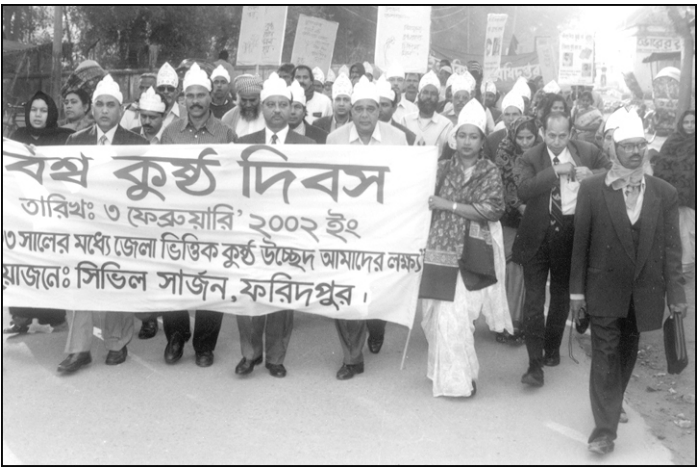 বিশ্ব কুষ্ঠ দিবস
তারিখঃ ৩ ফেব্রুয়ারি' ২০০২ ইং
৩ সালের মধ্যে জেলা ভিত্তিক কুষ্ঠ উচ্ছেদ আমাদের লক্ষ্য"
য়োজনেঃ সিভিল সার্জন, ফরিদপুর।